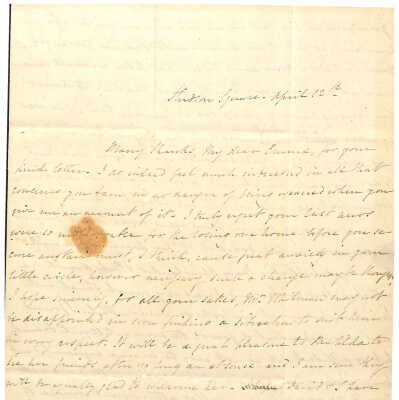 Hudson Square - April 12th
Many thanks, my dear Emma, for your
kind letter. I do indeed feel much interested in all that
concerns you & am in no danger of being wearied when you
give me an account of it. I truly regret your last
were so for the losing one home before you se-
cure another must, I think, cause great anxiety in your
little circle, however necessary such a change may be
I hope sincerely, for all your sakes, Mr. may not
be disappointed in soon finding a situation to suit him
in every respect. It will be a great pleasure to to
see her friends after so long an absence and I am sure they
will be equally glad to welcome her - David & I have